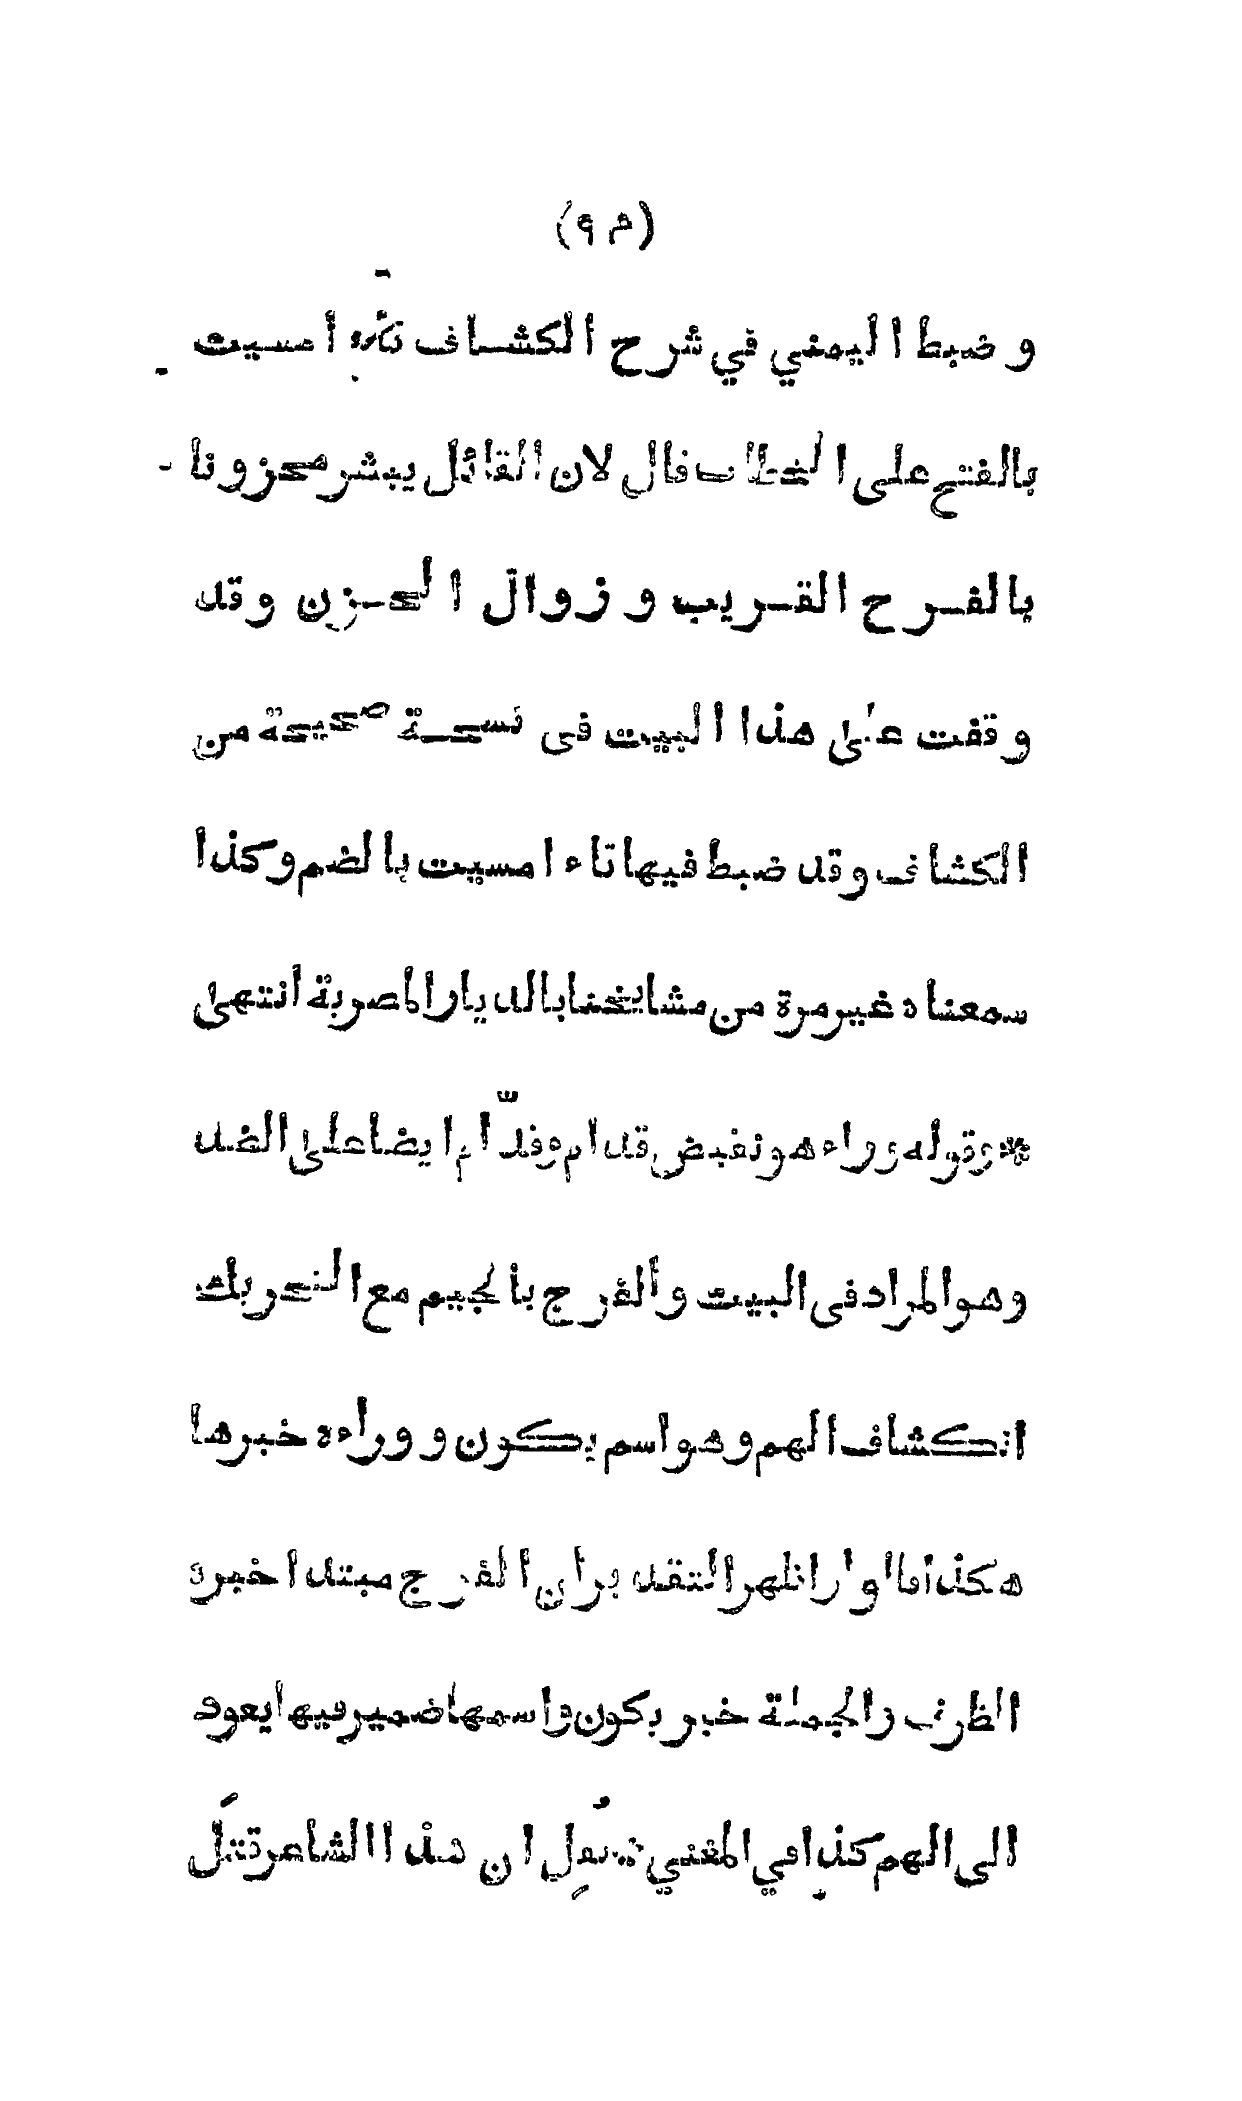 (٩م)
وضبط اليمني في شرح الكشاف تاءه أمسيت
بالفتح على الخطاب قال لان القائل يبشر محزونا
بالفرح القريب وزوال الحزن وقد
وقفت على هذا البيت فى نسخة صحيحة من
الكشاف وقد ضبط فيها تاء امسيت بالضم وكذا
سمعناه غير مرة من مشايخنا بالديار المصرية انتهى
* وقوله وراءه هو نقيض قدام وقدّام ايضا على الضد
وهو المراد فى البيت والفرج بالجيم مع التحريك
انكشاف الهم وهو اسم يكون ووراءه خبرها
هكذا قالوا والظهر التقدير ان الفرج مبتدا خبره
الظرف والجملة خبر يكون واسمها ضمير فيها يعود
الى الهم كذا في المغني يقول ان هذا الشاعر قتل